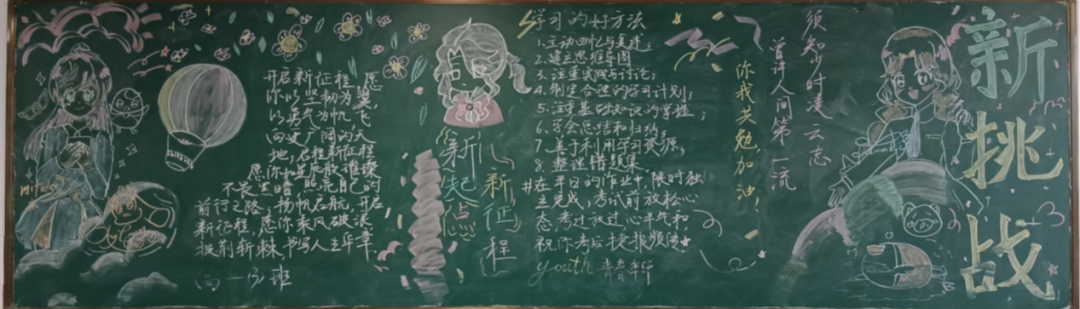 开启新征程,愿
你以坚韧为翼
以勇气为帆飞
向更广阔的天
地,启程新征程
愿你如星辰璀璨
不畏黑暗,照亮自己的
前行之路,扬帆启航,开启
新征程,愿你乘风破浪
披荆斩棘,书写人生华章
新起点
新征程
学习的好方法
1.主动回忆与复述;
2.建立思维导图
3.注重实践与讨论;
4.制定合理的学习计划;
5.注重基础知识的掌握;
6.学会总结和归纳;
7.善于利用学习资源;
8.整理错题集
#在平日的作业中,限时独
立完成,考试前放松心
态,考过放过,心平气和,
祝你考后捷报频传
youth 青春年华
你我共勉,加油,
须知少时凌云志
曾许人间第一流
新挑战